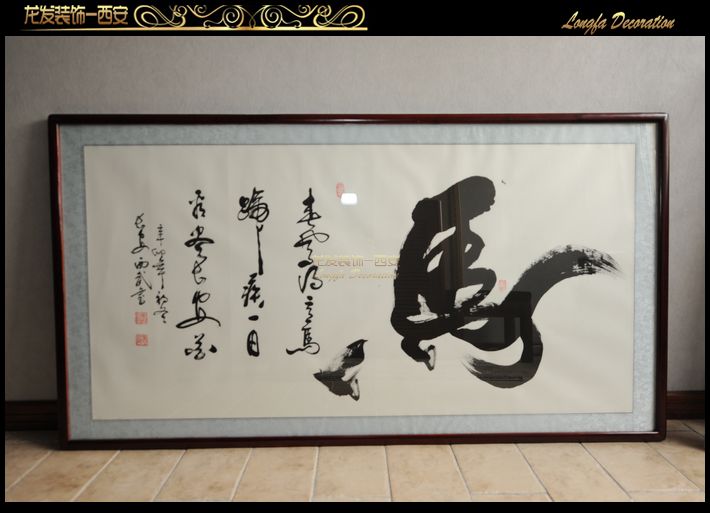 龙发装饰—西安
Longfa Decoration
馬
春风得意馬
蹄疾一日
看尽长安花
辛卯年初冬
长安
龙发装饰—西安
Longfa Decoration